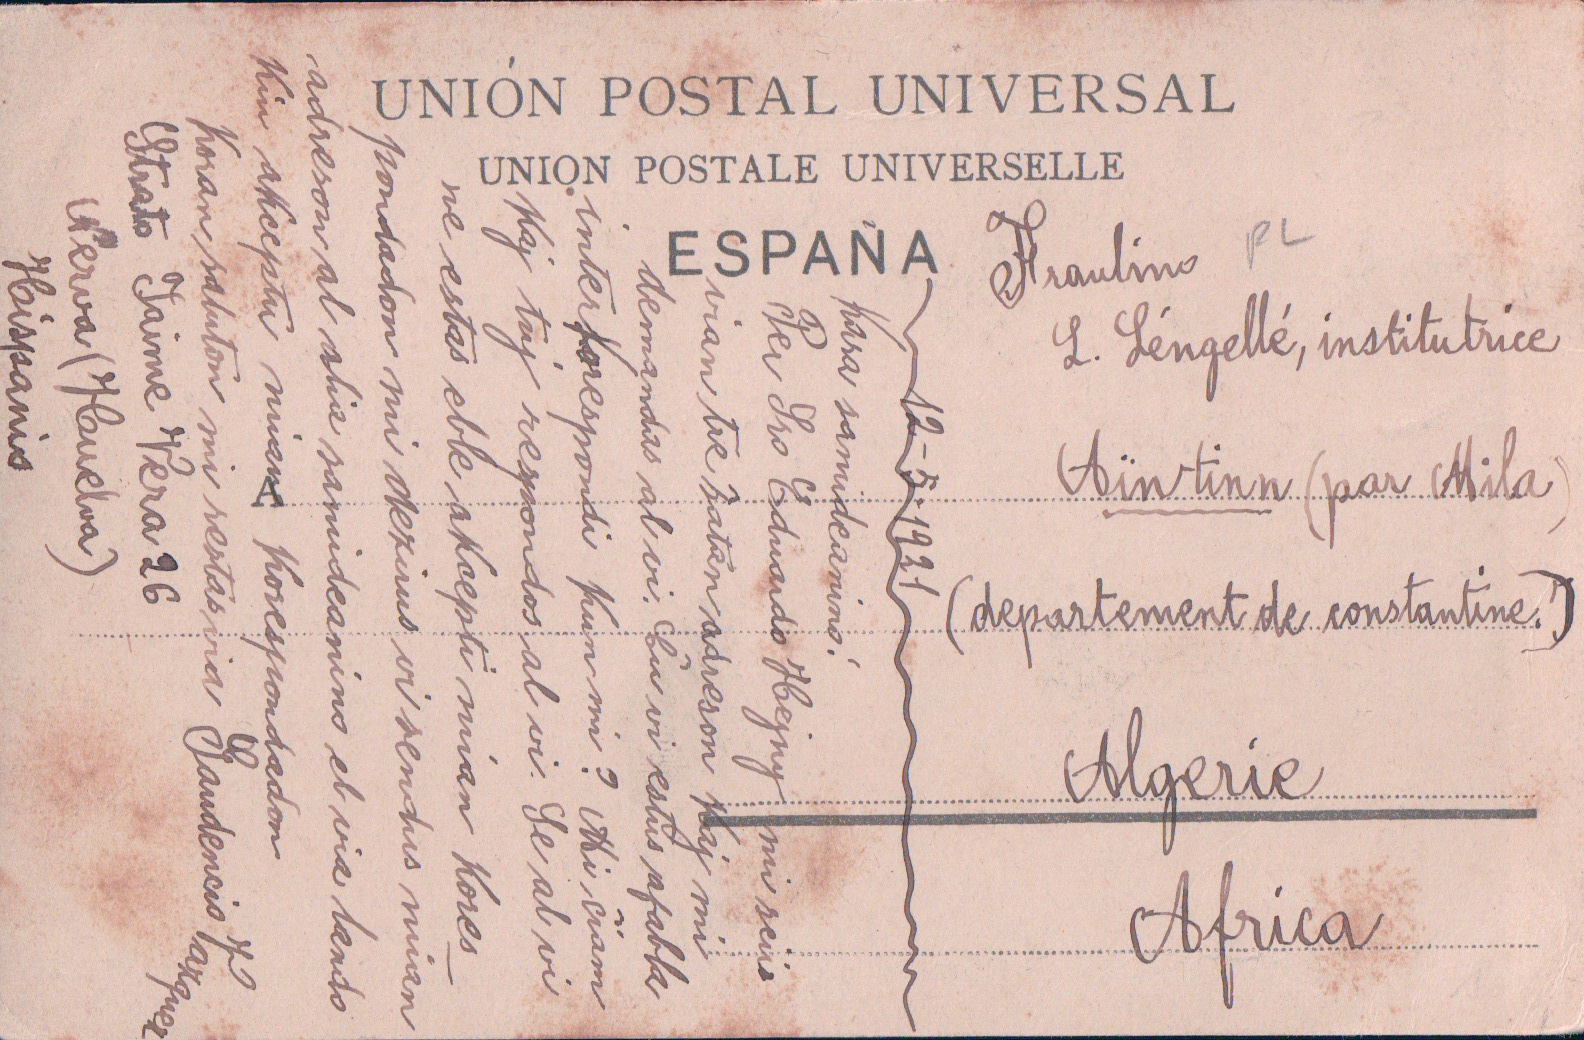 UNIÓN POSTAL UNIVERSAL
UNION POSTALE UNIVERSELLE
ESPAÑA
PL
Fraulino
L. Léngellé, institutrice
Aïn-tinn (par Mila)
(departement de constantine.)
Algerie
Africa
A
12-5-1921
Kara samideanino!
Per Sro Eduardo Hejny mi sciis
vian tre ŝatan adreson kaj mi
demandas al vi. Ĉu vi estus afabla
interkorespondi kun mi? Mi ĉiam
kaj tuj respondos al vi. Se al vi
ne estas eble akcepti mian kores-
pondadon mi dezirus vi sendus mian
adreson al alia samideanino el via lando
kiu akceptu mian korespondadon
Koran saluton mi restas via Gaudencio F. Vazquez
Strato Jaime Vera 26
Nerva (Huelva)
Hispanio